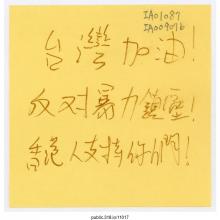 IA01087
IA009076
台灣加油!
反对暴力鎮壓!
香港人支持你們!
public.318.io/11017